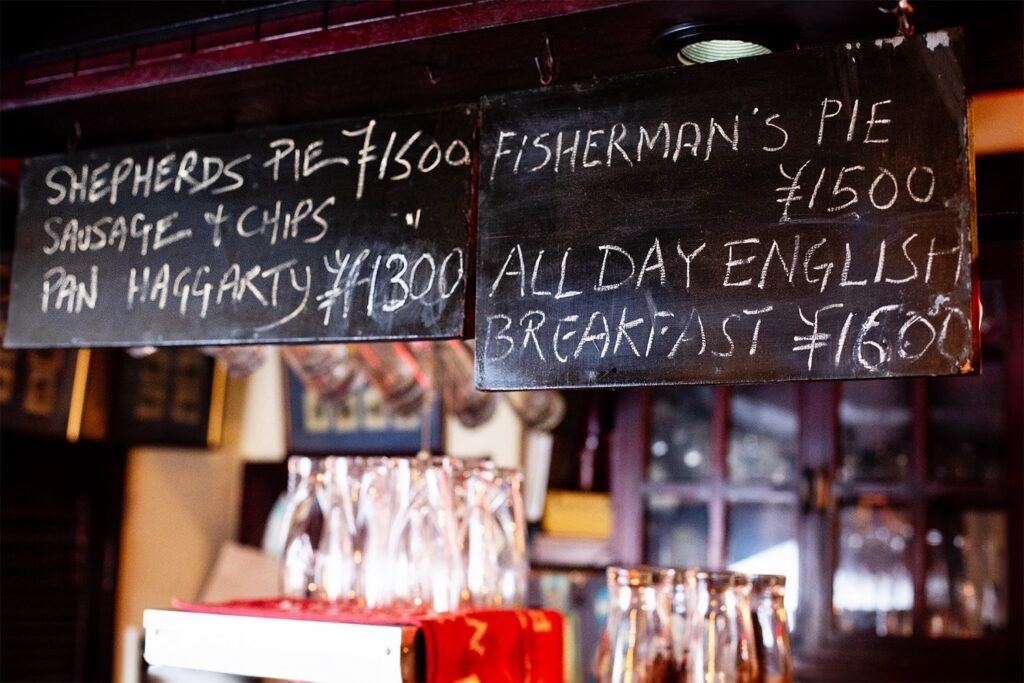 SHEPHERDS PIE ¥1500
SAUSAGE + CHIPS "
PAN HAGGARTY ¥1300
FISHERMAN'S PIE
¥1500
ALL DAY ENGLISH
BREAKFAST ¥1600